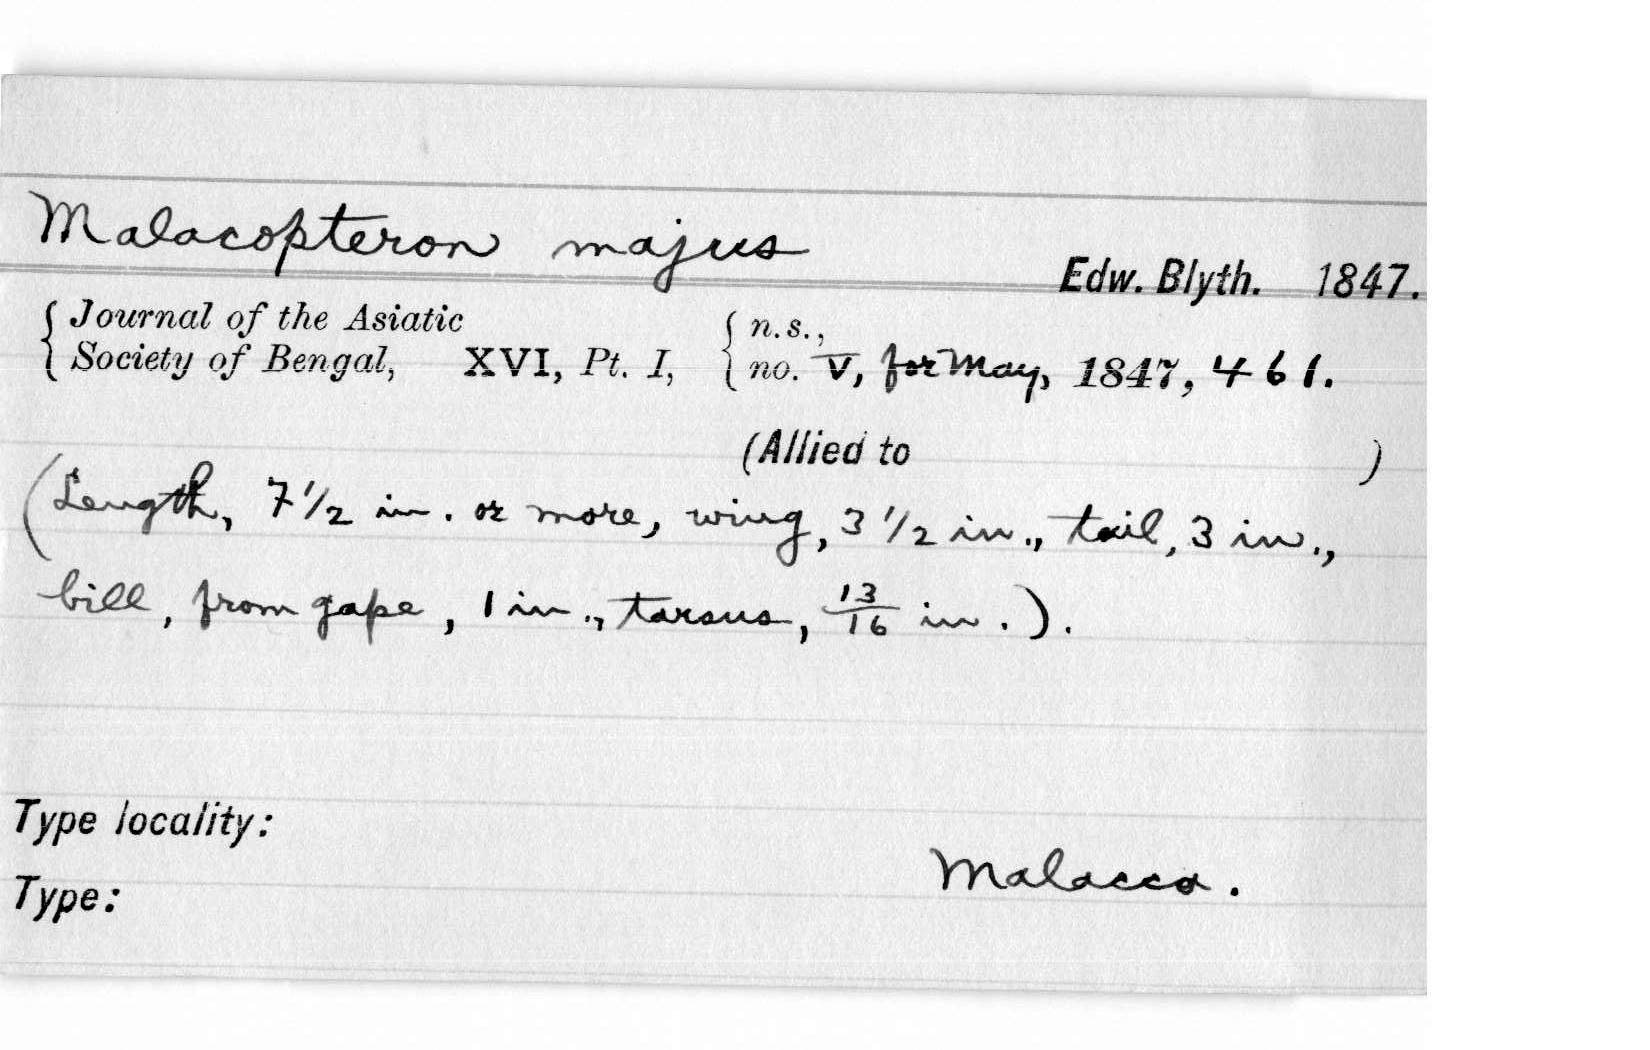 Malacopteron majus
Edw. Blyth. 1847.
{ Journal of the Asiatic { n.s.,
{ Society of Bengal, XVI, Pt. I, { no. V, for May, 1847, 461.
(Allied to )
(Length, 7 1/2 in. or more, wing, 3 1/2 in., tail, 3 in.,
bill, from gape, 1 in., tarsus, 13/16 in.).
Type locality:
Malacca.
Type: